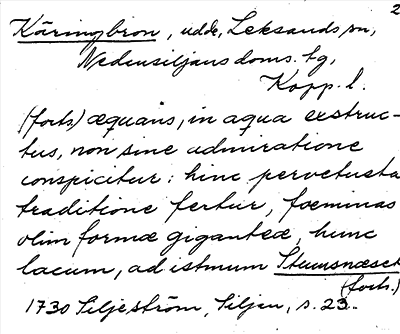 2
Käringbron, udde, Leksands sn,
Nedansiljans doms. tg,
Kopp. l.
(forts) æquans, in aqua exstruc-
tus, non sine admiratione
conspicitur: hinc pervetusta
traditione fertur, foeminas
olim formæ giganteæ, hunc
lacum, ad istmum Stumsnæset
(forts.)
1730 Siljeström, Siljan, s. 23.